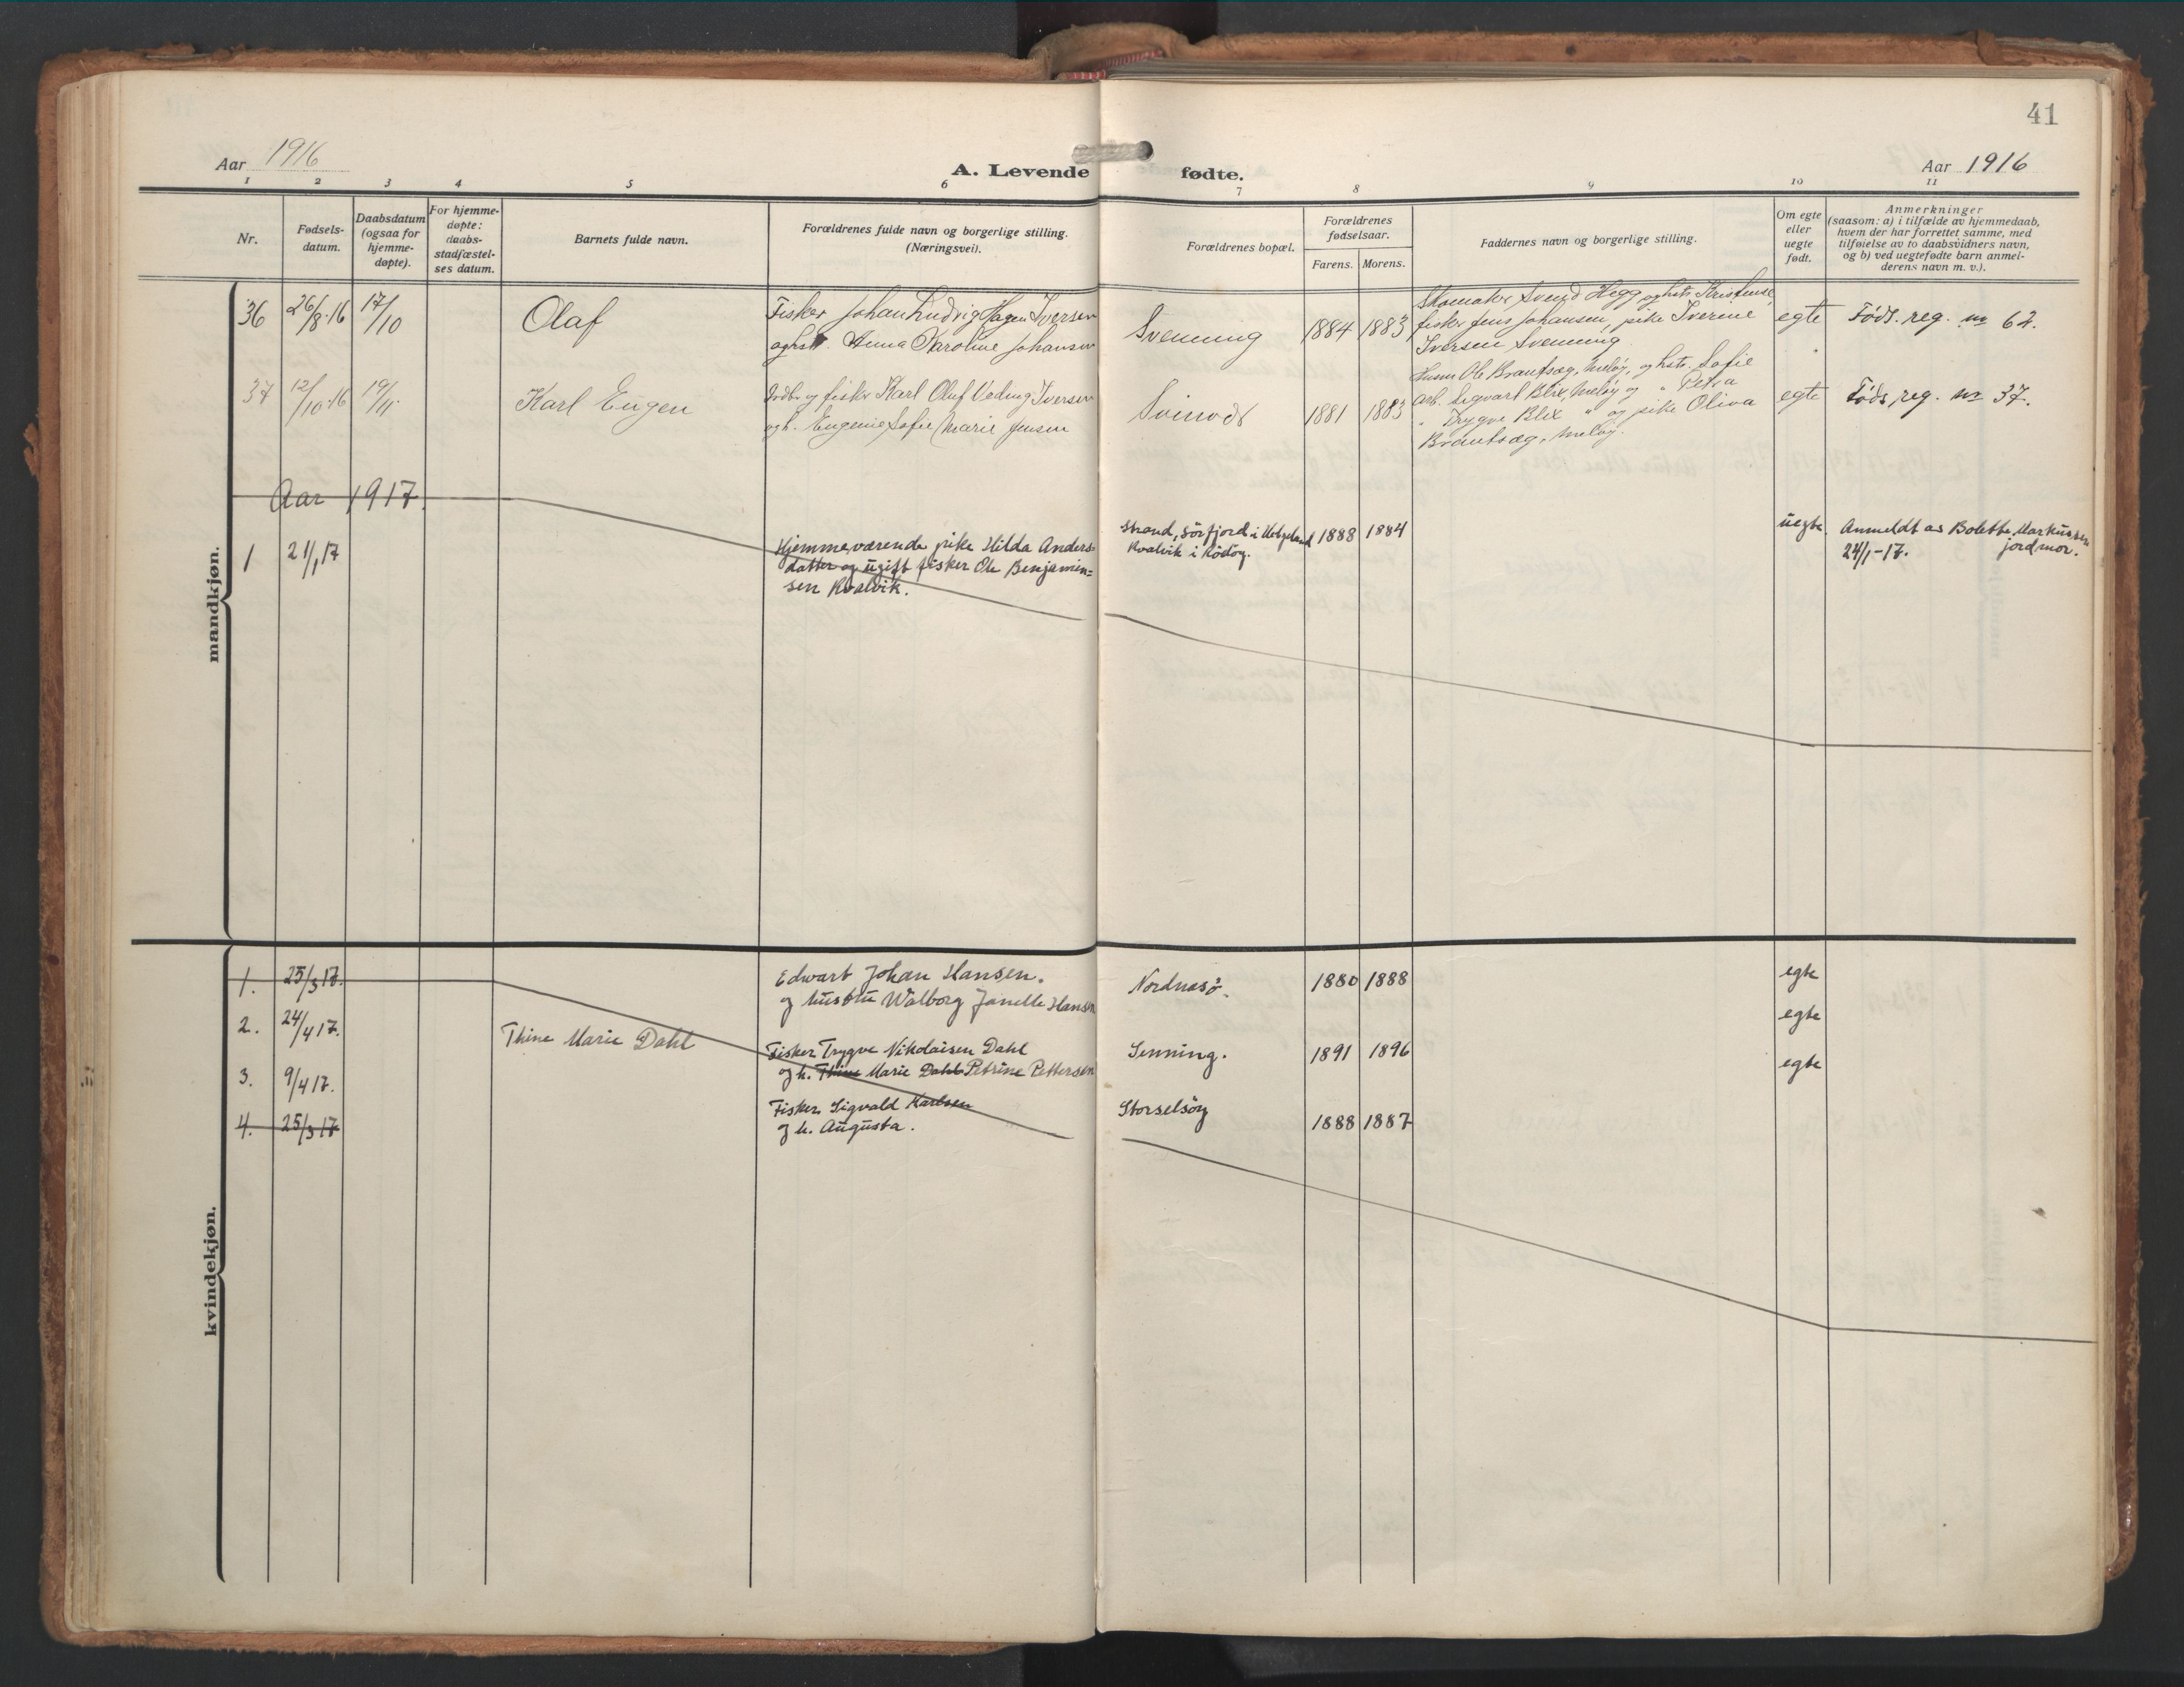 41
Aar 1916
A. Levende fødte.
Aar 1916
1 2 3 4 5 6 7 8 9 10 11
Nr.
Fødsels-
datum.
Daabsdatum
(ogsaa for
hjemme-
døpte).
For hjemme-
døpte:
daabs-
stadfæstel-
ses datum.
Barnets fulde navn.
Forældrenes fulde navn og borgerlige stilling.
(Næringsvei).
Forældrenes bopæl.
Forældrenes
fødselsaar.
Farens. Morens.
Faddernes navn og borgerlige stilling.
Om egte
eller
uegte
født.
Anmerkninger
(saasom: a) i tilfælde av hjemmedaab,
hvem der har forrettet samme, med
tilføielse av to daabsvidners navn,
og b) ved uegtefødte barn anmel-
derens navn m. v.).
mandkjøn.
36 26/8.16 17/10 Olaf
Fisker Johan Ludvig Hagen Iversen
og hstr. Anna Karoline Johansen
Svenning 1884 1883
Skomaker Svend Hegg og hstr. Kristense,
fisker Jens Johansen, pike Iverine
Iversen Svenning
egte Föds. reg. no 62.
37 12/10.16 19/11. Karl Eugen
og fisker Karl Oluf Iversen
og h. Eugenie Sofie Marie Jensen
Svinvær 1881 1883
Ole Brautsæg, Meløy, og hstr. Sofie
arb. Sigvart Blix, Meløy og " Petra
" Trygve Blix " og pike Oliva
Brautsæg, Meløy.
egte Föds. reg. no 37.
Aar 1917.
1 21/1 17
Hjemmeværende pike Hilda Anders-
datter og ugift fisker Ole Benjamin=
sen Kvalvik.
Strand, Sörfjord i Helgeland
Kvalvik i Rödöy.
1888 1884
uegte.
Anmeldt av Bolette Markussen
24/1-17. jordmor.
kvindekjøn.
1. 25/3 17.
Edvart Johan Hansen.
og hustru Walborg Janelle Hansen
Nordnæsö. 1880 1888 egte
2. 24/4 17. Thine Marie Dahl
Fisker Trygve Nikolaisen Dahl
og h. Thine Marie Dahl Petrine Pettersen
Senning. 1891 1896 egte
3. 9/4 17.
Fisker Sigvald Karlsen
og h. Augusta.
Storselsöy 1888 1887 egte
4. 25/3 17